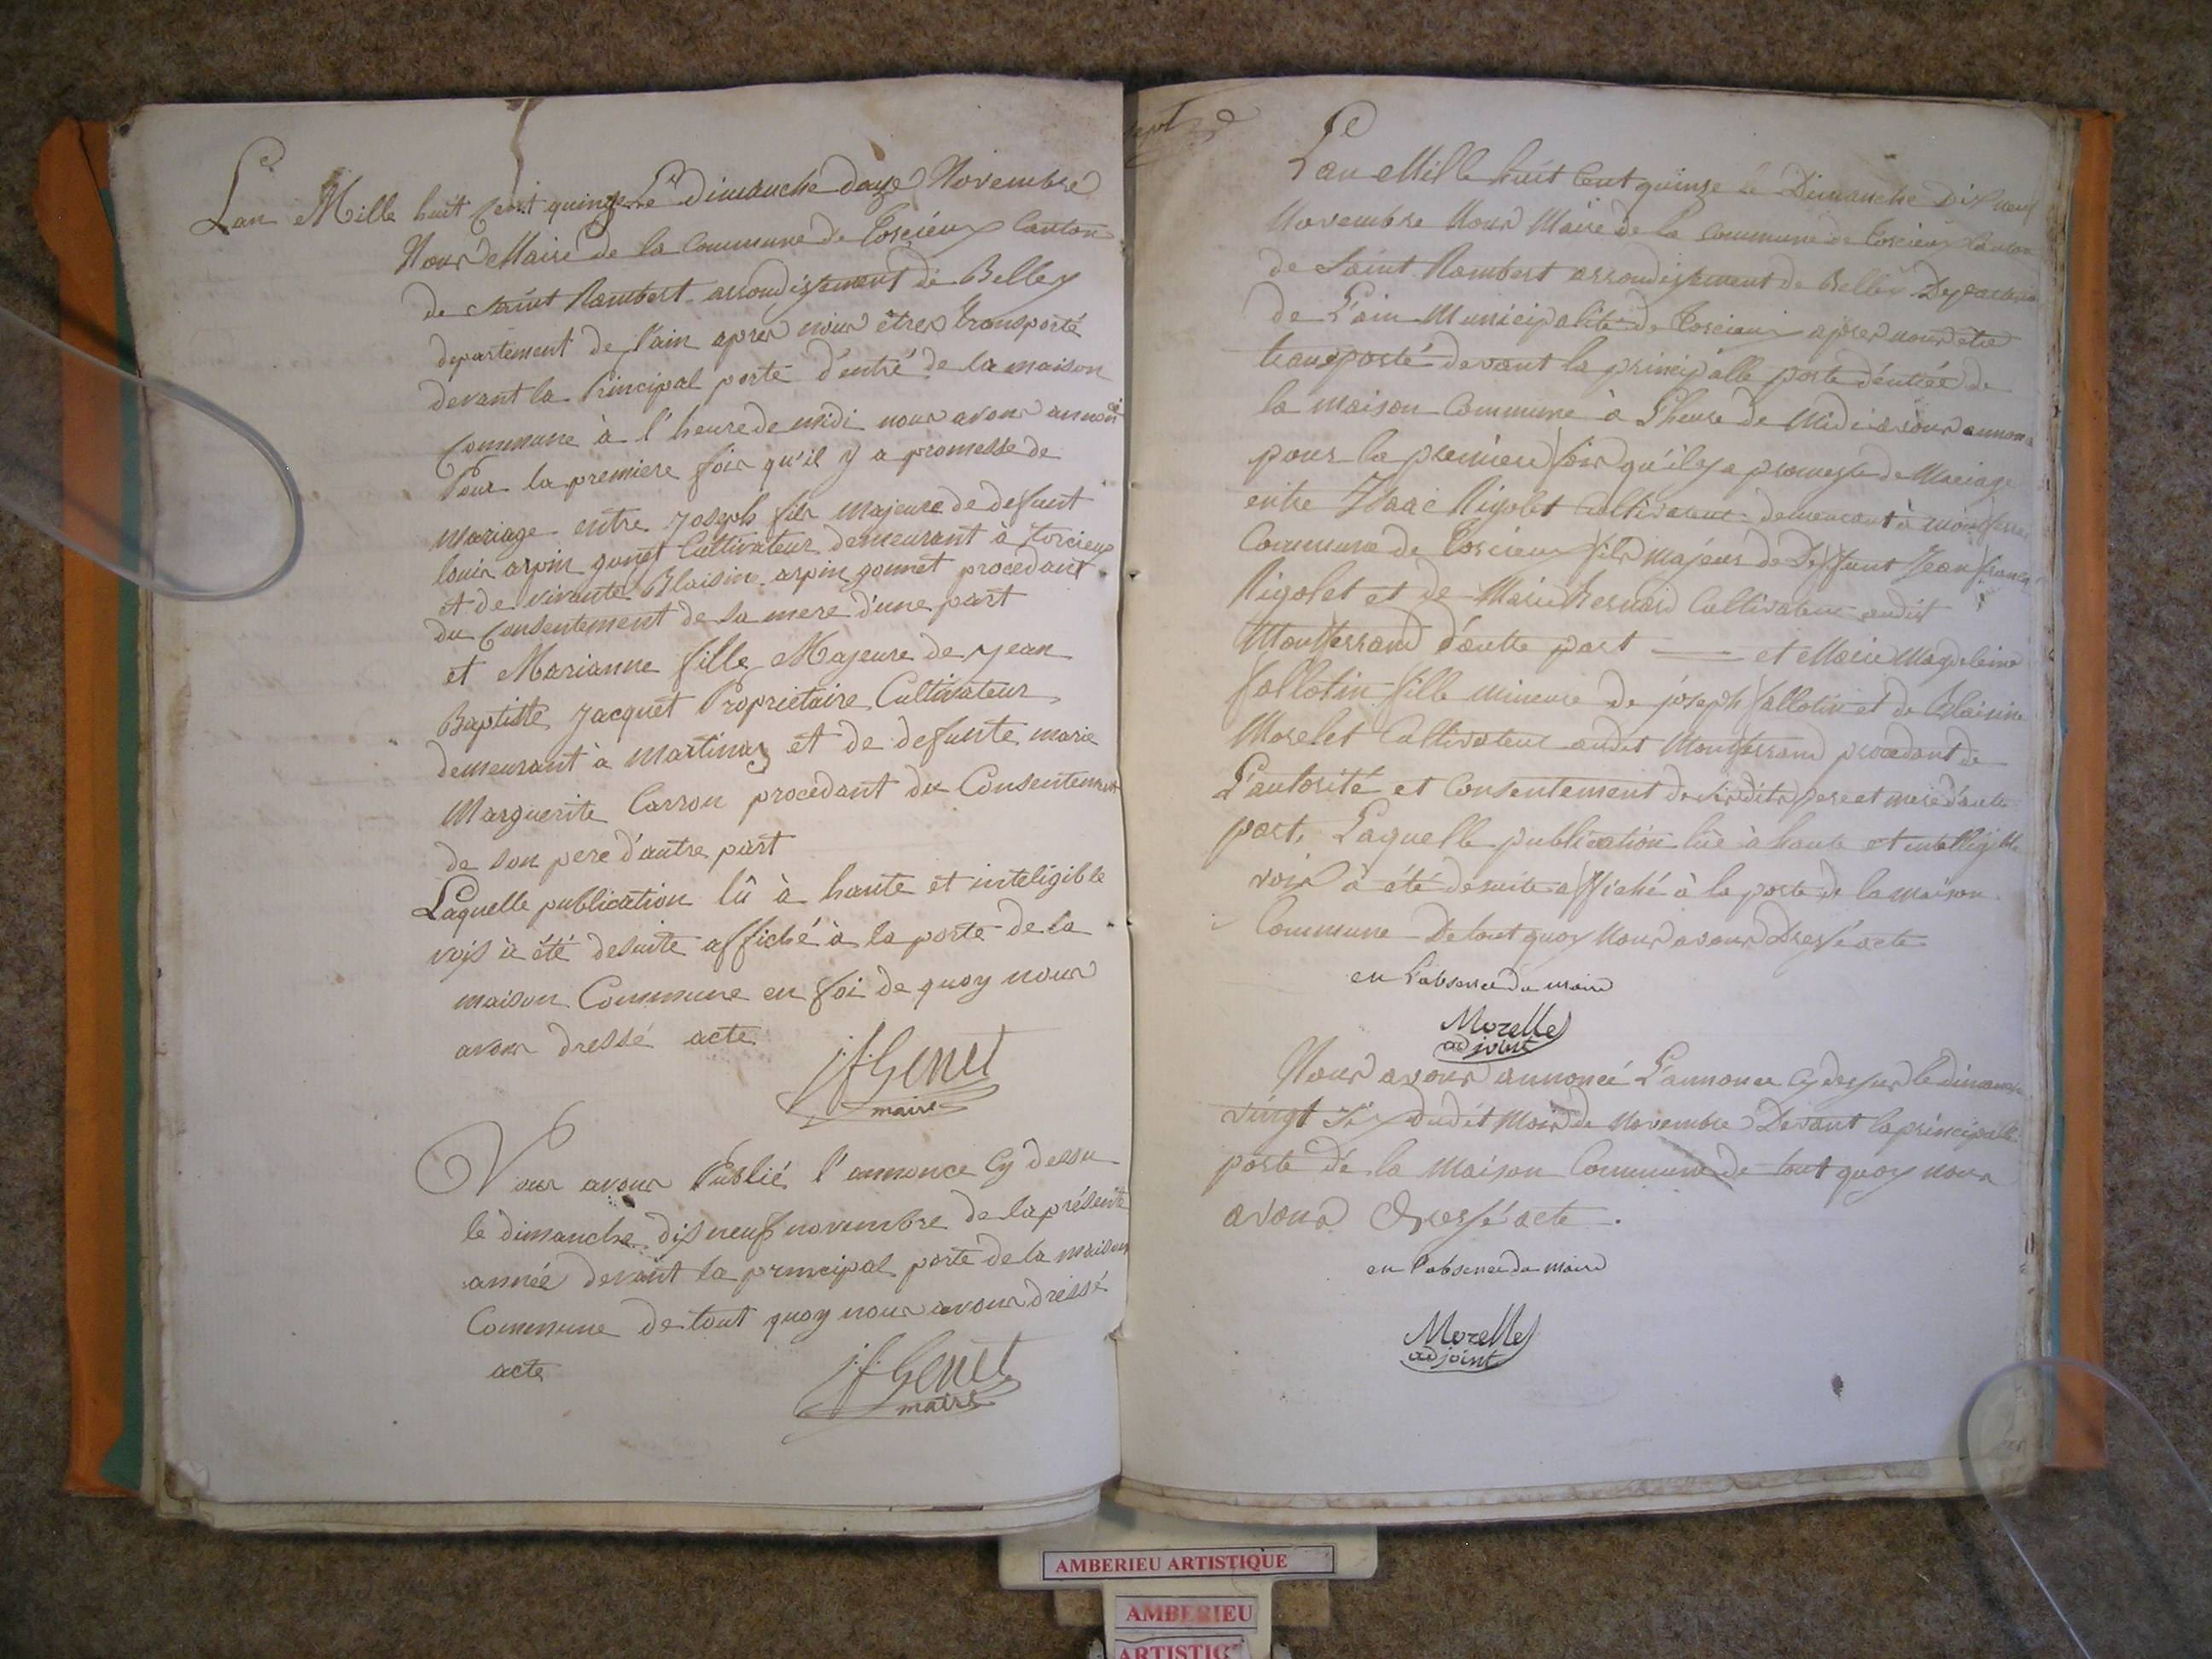 Lan Mille huit Cent quinze Le Dimanche douze Novembre
Nous Maire de la Commune de Torcieux Canton
de Saint Rambert arrondissement de Belley
departement de l'ain apres nous êtres transporté
devant la Principal porte d'entré de la maison
Commune à l'heure de midi nous avons annoncé
Pour la premiere fois qu'il y a promesse de
mariage entre Joseph fils majeure de defunt
louis arpin gonet Cultivateur demeurant à torcieux
et de vivante Blaisine arpin gonnet procedant
du Consentement de sa mere d'une part
et Marianne fille Majeure de jean
Baptiste Jacquet Propriétaire Cultivateur
demeurant à Martinaz et de defunte marie
Marguerite Carron procedant du Consentement
de son pere d'autre part
Laquelle publication lû à haute et inteligible
voix à été desuite affiché à la porte de la
maison Commune en foi de quoy nous
avons dressé acte
j. f. Genet
maire
Nous avons Publié l'annonce Cy dessu
le dimanche dix neuf novembre de la présente
année devant la principal porte de la maison
Commune de tout quoy nous avons dressé
acte
j. f. Genet
maire
Lan Mille huit Cent quinze le Dimanche Dix neuf
Novembre Nous Maire de la Commune de Torcieux Canton
de Saint Rambert arrondissement de Belley Departement
de L'ain Municipalité de Torcieux apres nous etre
transporté devant la principalle porte d'entrée de
la maison Commune à L'heure de Midi avons annoncé
pour la premiere fois qu'il y a promesse de Mariage
entre Isaac Rigolet Cultivateur demeurant à
Commune de Torcieux fils majeur de Deffunt Jean françois
Rigolet et de Marie Bernard Cultivateur audit
Montferrand d'autre part et Marie Magdeleine
fallotin fille mineure de joseph fallotin et de Blaisine
Morelet Cultivateur audit Montferrand procedant de
L'autorité et Consentement de sesdits pere et mere d'autre
part, Laquelle publication lüe à haute et intelligible
voix à été desuite affiché à la porte de la maison
Commune De tout quoy Nous avons Dressé acte
en l'absence du maire
Morelle
adjoint
Nous avons annoncé L'annonce Cy dessus le dimanche
vingt six dudit Mois de Novembre Devant la principalle
porte de la Maison Commune de tout quoy nous
avons Dressé acte.
en l'absence du maire
Morelle
adjoint
AMBERIEU ARTISTIQUE
AMBERIEU
ARTISTIQ